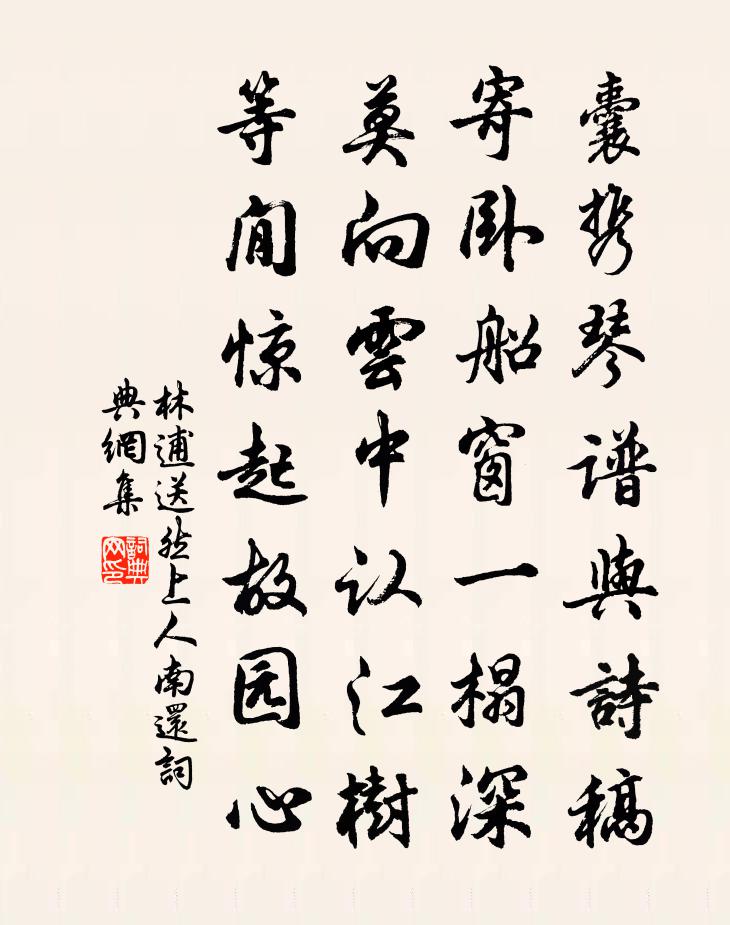 囊携琴谱與詩稿
寄卧船窗一榻深
莫向雲中认江樹
等闲惊起故园心
林逋送然上人南還詞
典網集
詞典
网印